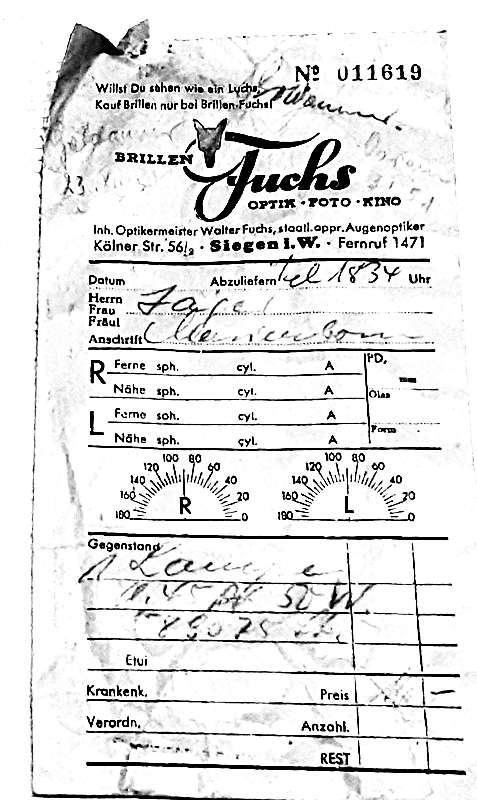 Nº 011619
Willst Du sehen wie ein Luchs,
Kauf Brillen nur bei Brillen-Fuchs!
BRILLEN Fuchs
OPTIK · FOTO · KINO
Inh. Optikermeister Walter Fuchs, staatl. appr. Augenoptiker
Kölner Str. 56/2 · Siegen i.W. · Fernruf 1471
Datum Abzuliefern Tel 1834 Uhr
Herrn
Frau
Fräul
Anschrift
R Ferne sph. cyl. A PD. mm
Nähe sph. cyl. A Glas
L Ferne sph. cyl. A Form
Nähe sph. cyl. A
180 160 140 120 100 80 60 40 20 0 R
180 160 140 120 100 80 60 40 20 0 L
Gegenstand
1
50 W.
Etui
Krankenk. Preis
Verordn. Anzahl.
REST